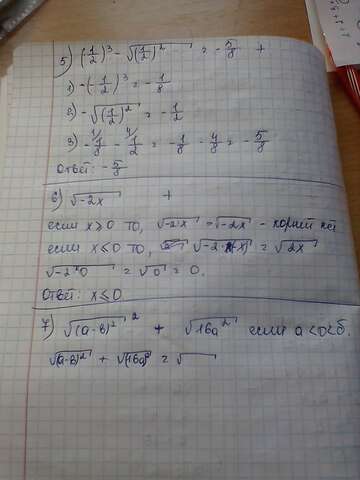 5) (-1/2)³ - √(1/2)² = -5/8 +
1) -(-1/2)³ = -1/8
2) -√(1/2)² = -1/2
3) -1/8 - 1/2 = -1/8 - 4/8 = -5/8
Ответ: -5/8
6) √-2x +
если x≥0 то, √-2·x = √-2x - корней нет
если x≤0 то, √-2·(-x) = √2x
√-2·0 = √0 = 0.
Ответ: x≤0
7) √(a-в)² ² + √16a² если a<0<б.
√(a-в)² + √(16a)² = √